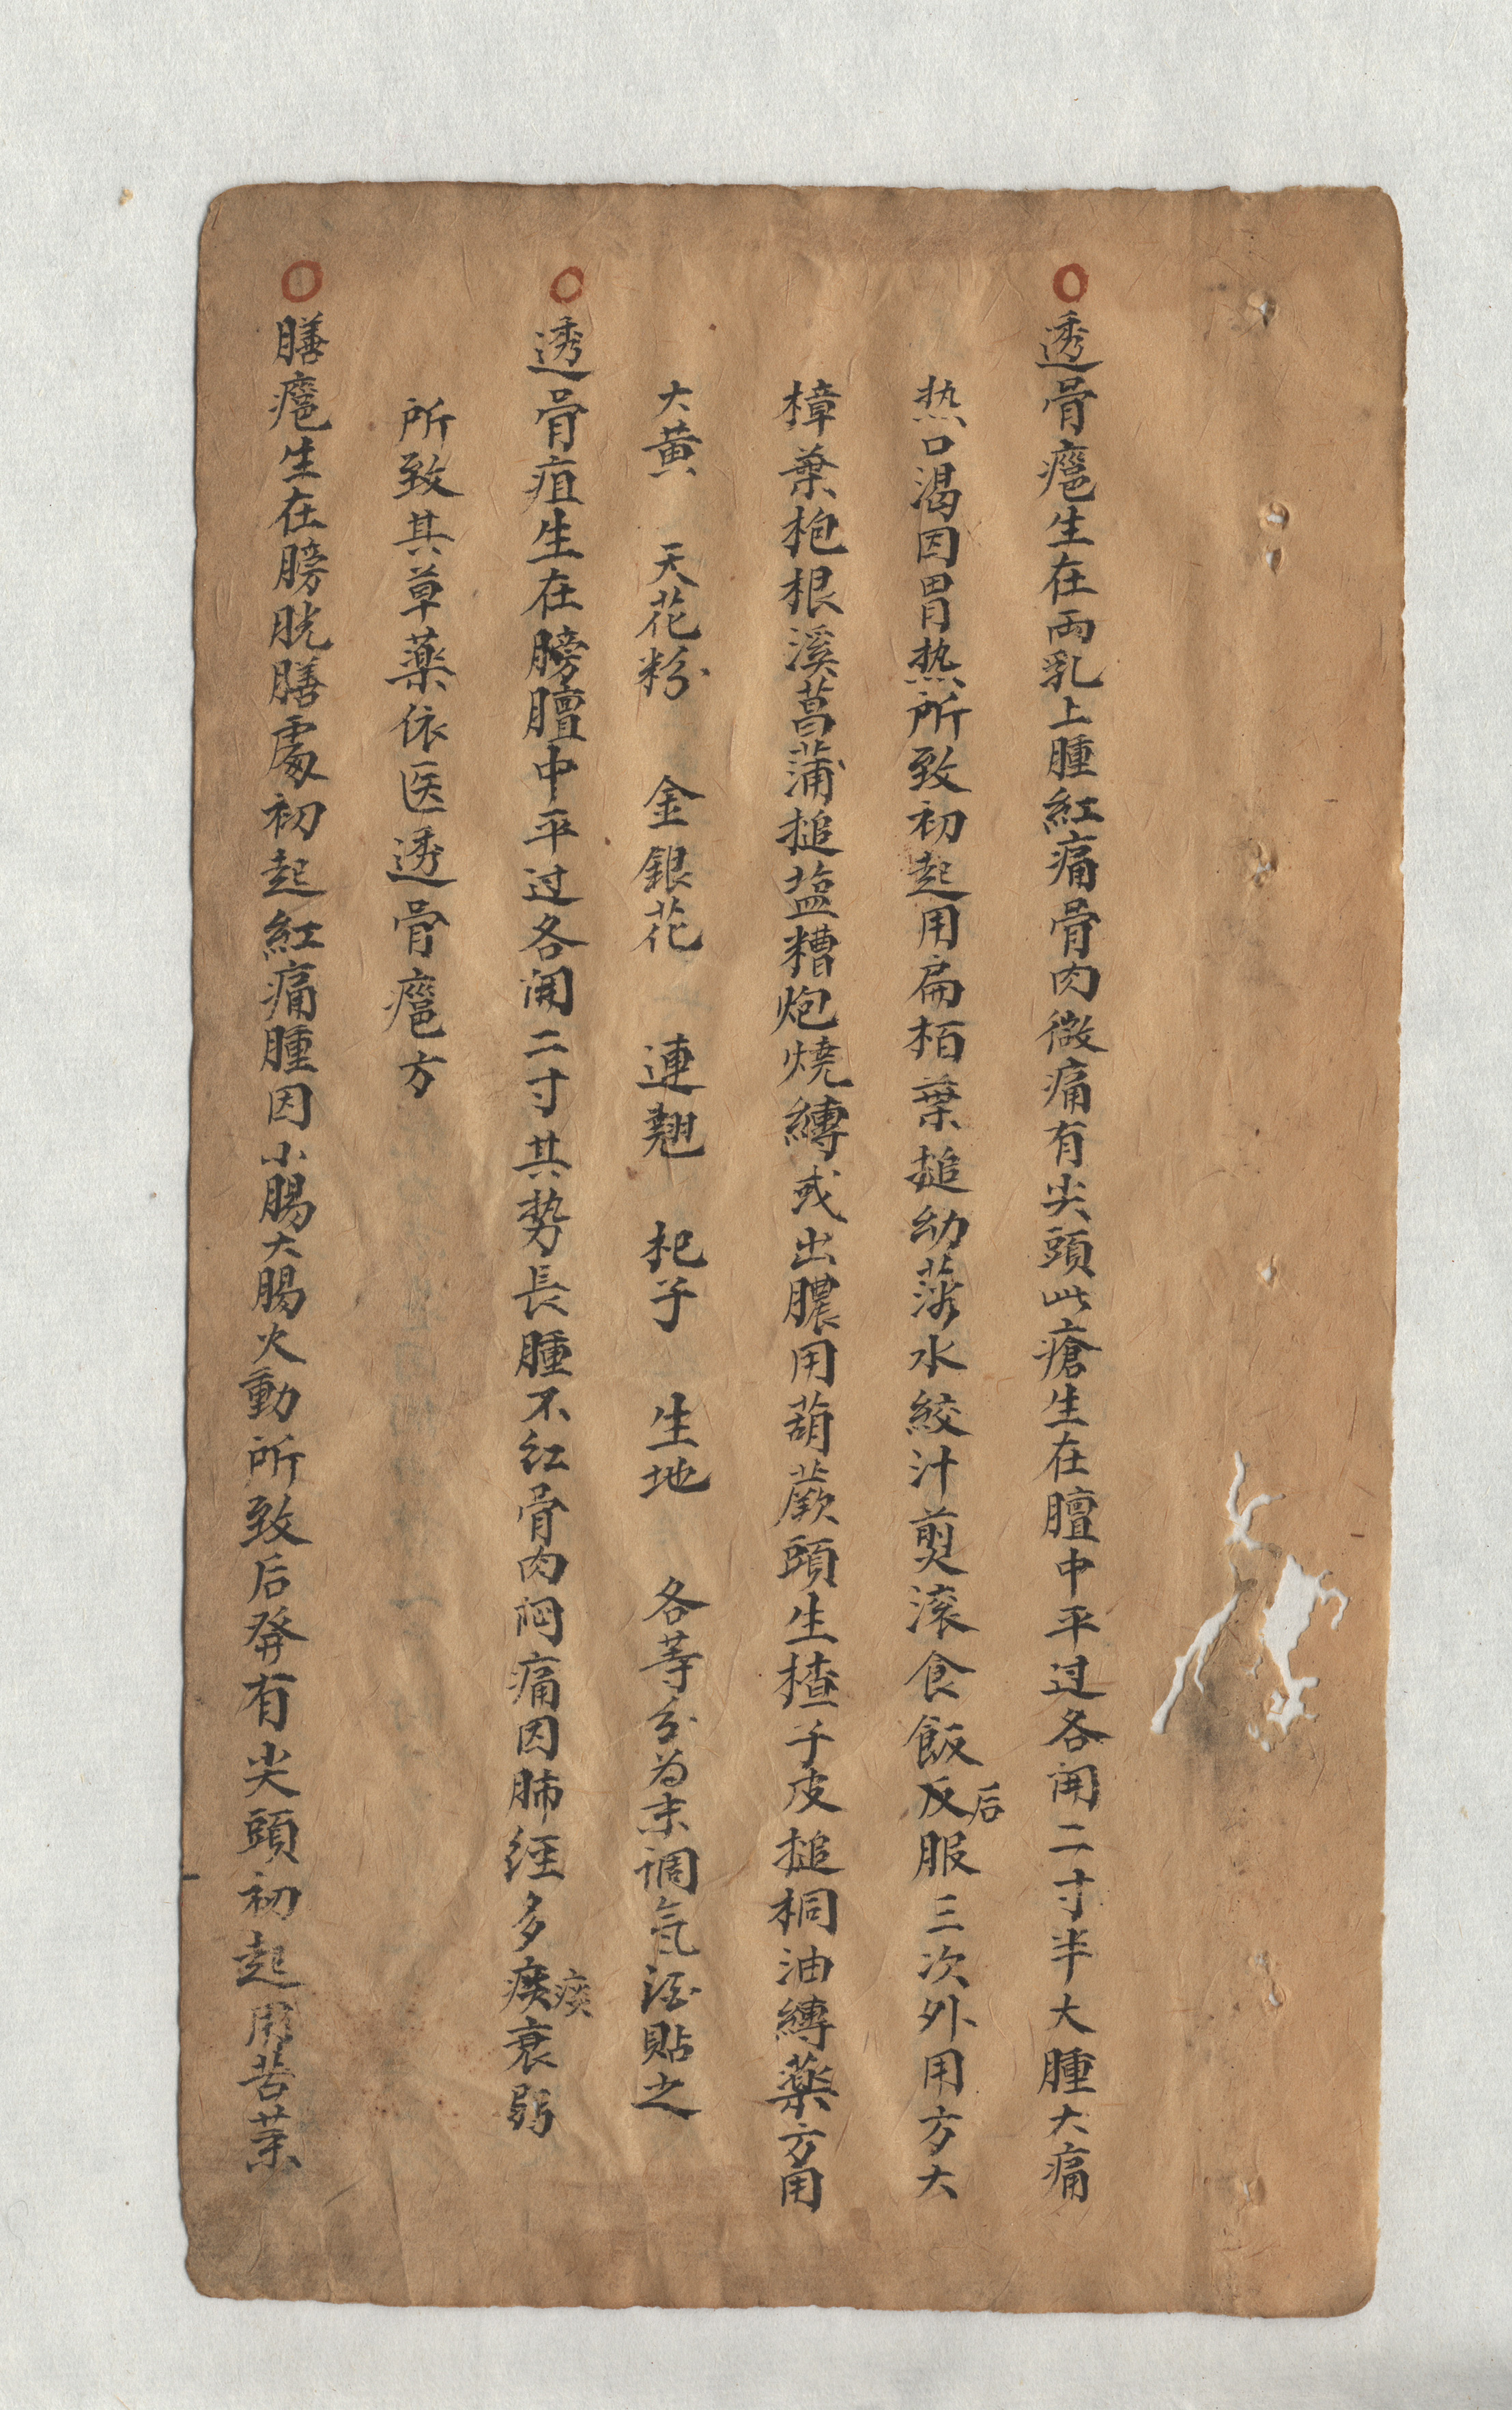 ○透骨癰生在両乳上腫紅痛骨肉微痛有尖頭此瘡生在膻中平过各開二寸半大腫大痛
热口渴因胃热所致初起用扁柏葉搥幼落水絞汁煎滚食飯反后服三次外用方大
樟葉枹根溪菖蒲搥塩糟炮燒縛或出膿用葫蕨頭生楂子皮搥桐油縛薬方用
大黄 天花粉 金銀花 連翹 杞子 生地 各等分为末調氣酒貼之
○透骨疽生在膀膻中平过各開二寸其势長腫不红骨肉悶痛因肺经多痰痰衰弱
所致其草薬依医透骨癰方
○膳癰生在膀胱膳處初起紅痛腫因小腸大腸火動所致后發有尖頭初起用苦葉